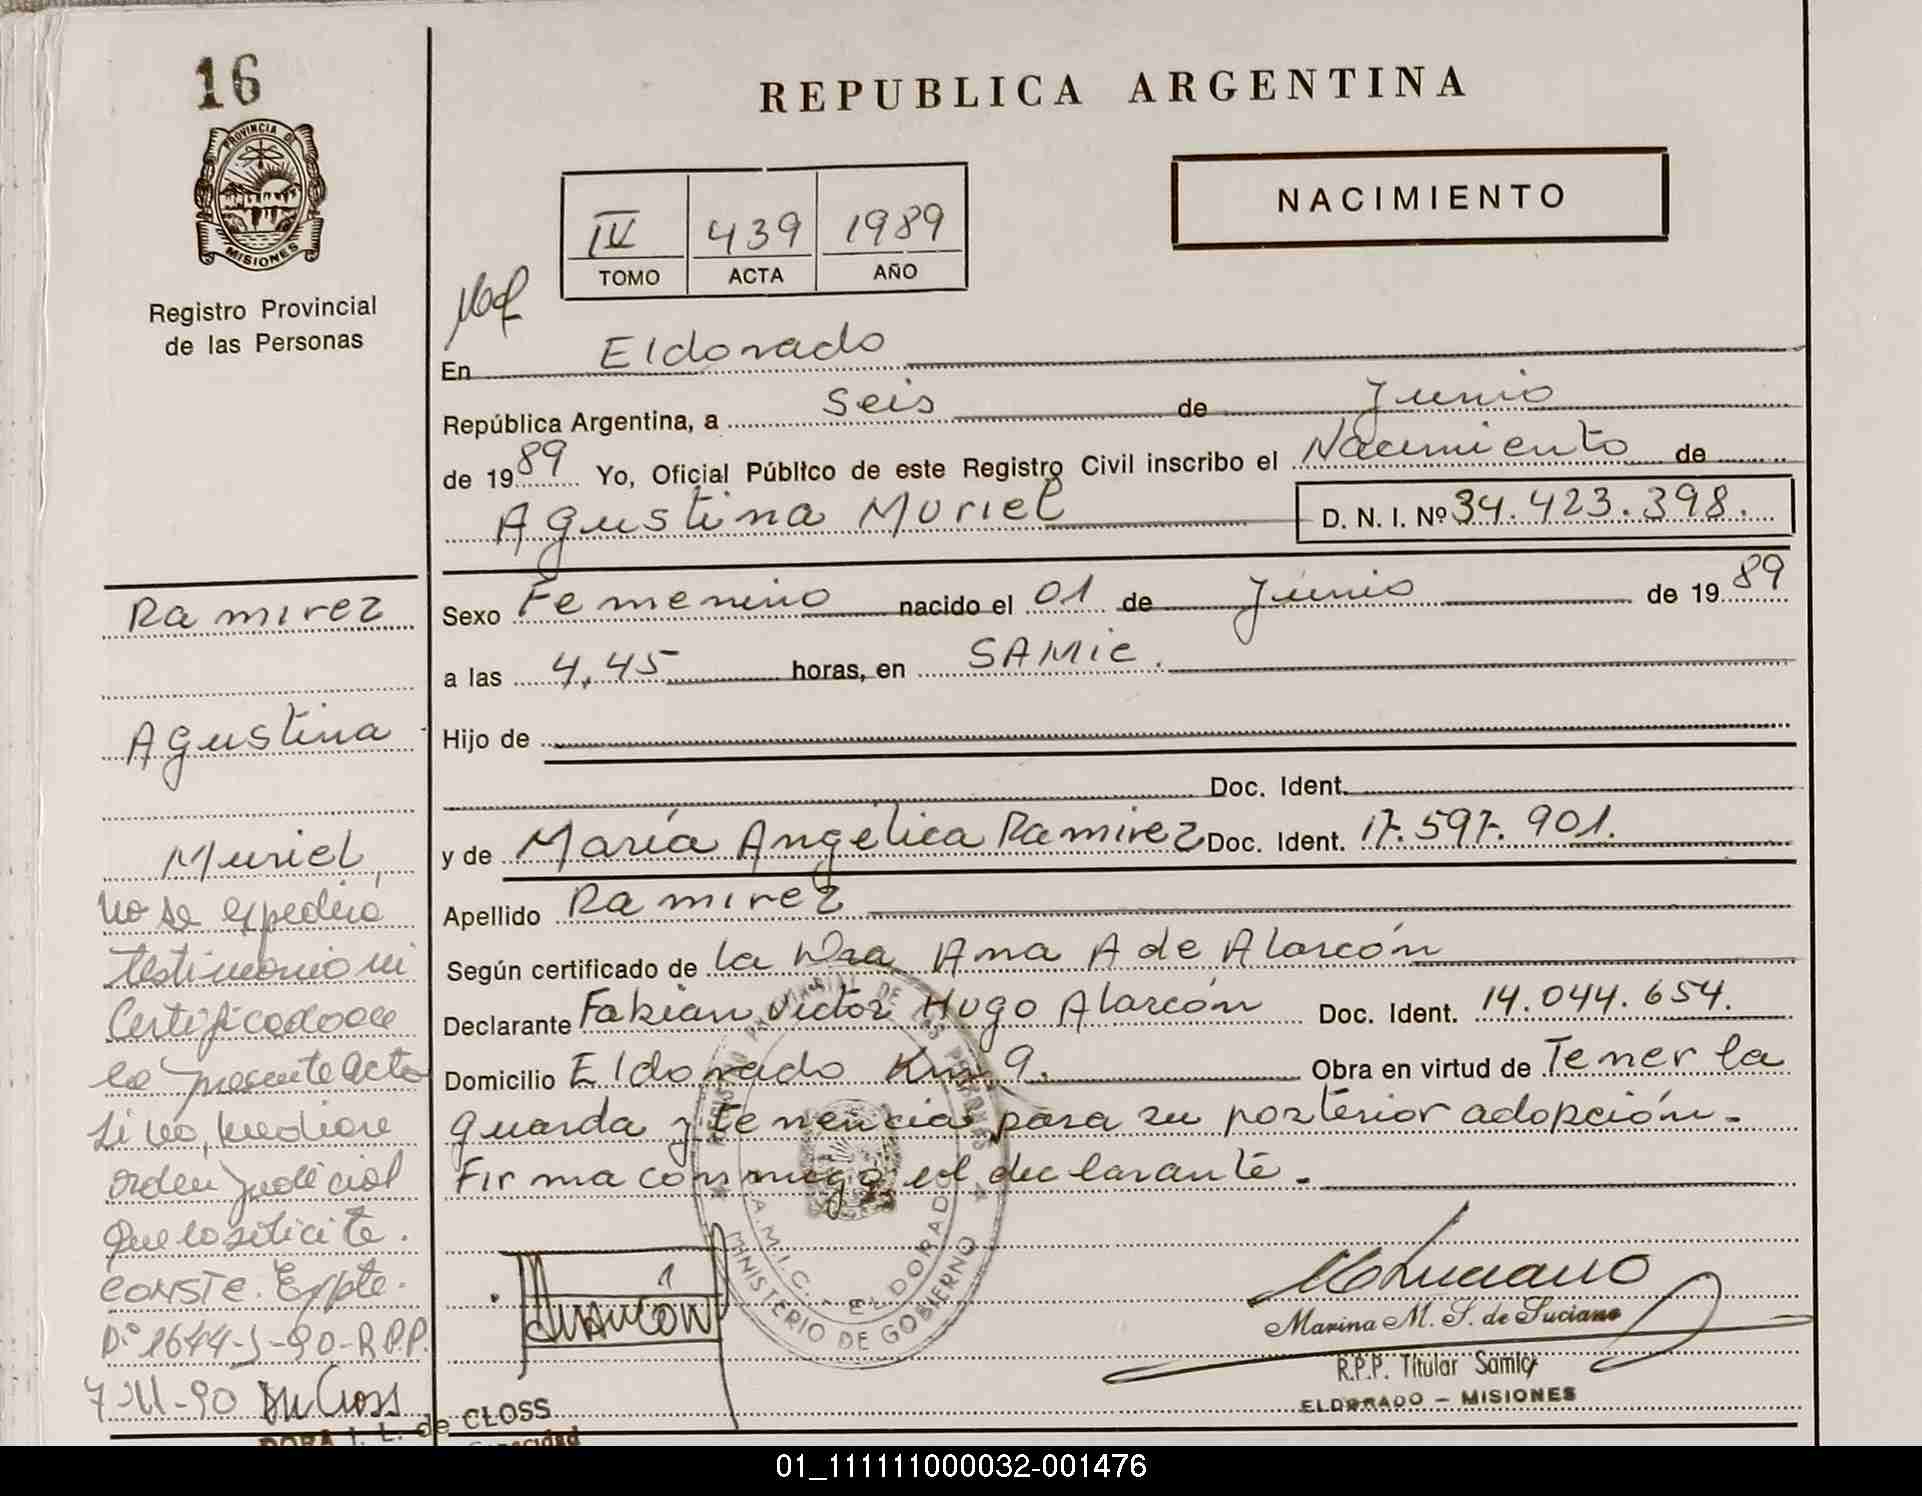 16
PROVINCIA DE
MISIONES
Registro Provincial
de las Personas
REPUBLICA ARGENTINA
NACIMIENTO
IV 439 1989
TOMO ACTA AÑO
En Eldorado
República Argentina, a Seis de Junio
de 1989 Yo, Oficial Público de este Registro Civil inscribo el Nacimiento de
Agustina Muriel D. N. I. Nº 34.423.398.
Sexo Femenino nacido el 01 de Junio de 1989
a las 4,45 horas, en SAMIC.
Hijo de
Doc. Ident.
y de María Angélica Ramirez Doc. Ident. 17.597.901.
Apellido Ramirez
Según certificado de la Dra Ana A de Alarcón
Declarante Fabian Victor Hugo Alarcón Doc. Ident. 14.044.654.
Domicilio Eldorado Km 9. Obra en virtud de Tener la
guarda y tenencia para su posterior adopción.
Firma conmigo el declarante.
Ramirez
Agustina
Muriel
No se expedirá
testimonio ni
Certificado de
la presente acta
si no, mediare
orden judicial
que lo solicite.
CONSTE. Expte.
Nº 1644-J-90-R.P.P.
DORA I. L. de CLOSS
Alarcón
MINISTERIO DE GOBIERNO
S.A.M.I.C. - ELDORADO
Marina M. S. de Luciano
R.P.P. Titular Samic
ELDORADO - MISIONES
01_111111000032-001476